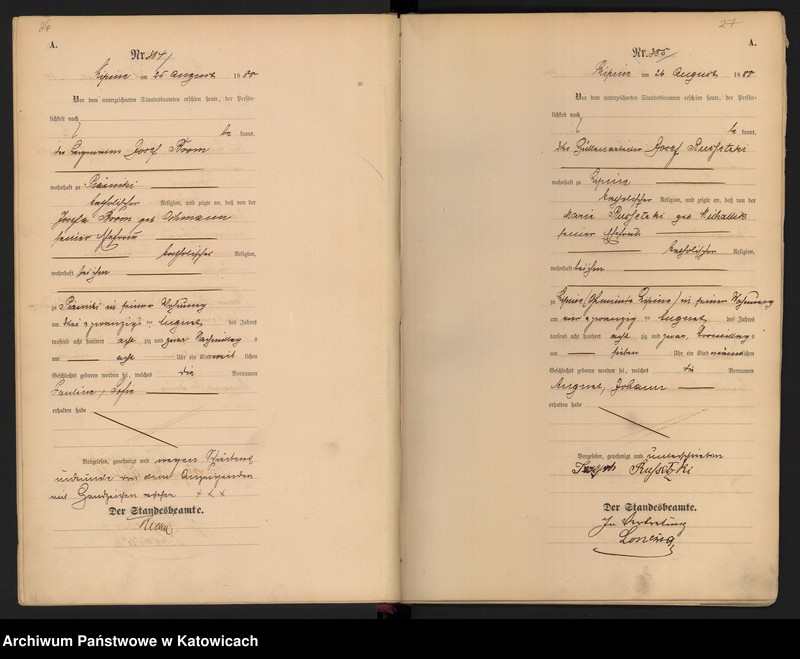 26
A.
Nr. 284
Lipine am 25 August 1880
Vor dem unterzeichneten Standesbeamten erschien heute, der Persön-
lichkeit nach
be kannt,
der Josef Brom
wohnhaft zu Piasniki
katholischer Religion, und zeigte an, daß von der
Josefa Brom geb
seiner Ehefrau
katholischer Religion,
wohnhaft bei ihm
zu Piasniki in seiner Wohnung
am drei u zwanzig ten August des Jahres
tausend acht hundert acht zig und zwar Nachmittag s
um acht Uhr ein Kind weib lichen
Geschlechts geboren worden sei, welches die Vornamen
Pauline, Sofie
erhalten habe
Vorgelesen, genehmigt und wegen Schreibens
unkunde von dem Anzeigenden
mit Handzeichen versehen + + +
Der Standesbeamte.
27
A.
Nr. 285
Lipine am 26 August 1880
Vor dem unterzeichneten Standesbeamten erschien heute, der Persön-
lichkeit nach
be kannt,
der Hüttenarbeiter Josef Russetzki
wohnhaft zu Lipine
katholischer Religion, und zeigte an, daß von der
Marie Russetzki geb Michallik
seiner Ehefrau
katholischer Religion,
wohnhaft bei ihm
zu Lipine (Gemeinde Lipine) in seiner Wohnung
am vier u zwanzig ten August des Jahres
tausend acht hundert acht zig und zwar Vormittag s
um sieben Uhr ein Kind männ lichen
Geschlechts geboren worden sei, welches die Vornamen
August, Johann
erhalten habe
Vorgelesen, genehmigt und unterschrieben
Der Standesbeamte.
In Vertretung
Archiwum Państwowe w Katowicach